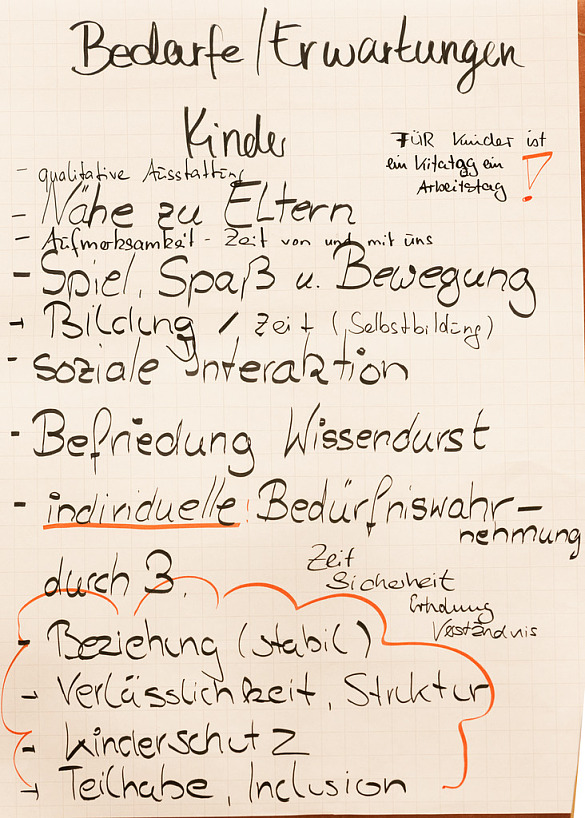 Bedarfe/Erwartungen
Kinder
FÜR Kinder ist
ein Kitatag ein
Arbeitstag !
- qualitative Ausstattung
- Nähe zu Eltern
- Aufmerksamkeit - Zeit von und mit uns
- Spiel, Spaß u. Bewegung
- Bildung / Zeit (Selbstbildung)
- soziale Interaktion
- Befriedung Wissendurst
- individuelle Bedürfniswahr-
nehmung
durch 3.
Zeit
Sicherheit
Erholung
Verständnis
- Beziehung (stabil)
- Verlässlichkeit, Struktur
- Kinderschutz
- Teilhabe, Inclusion